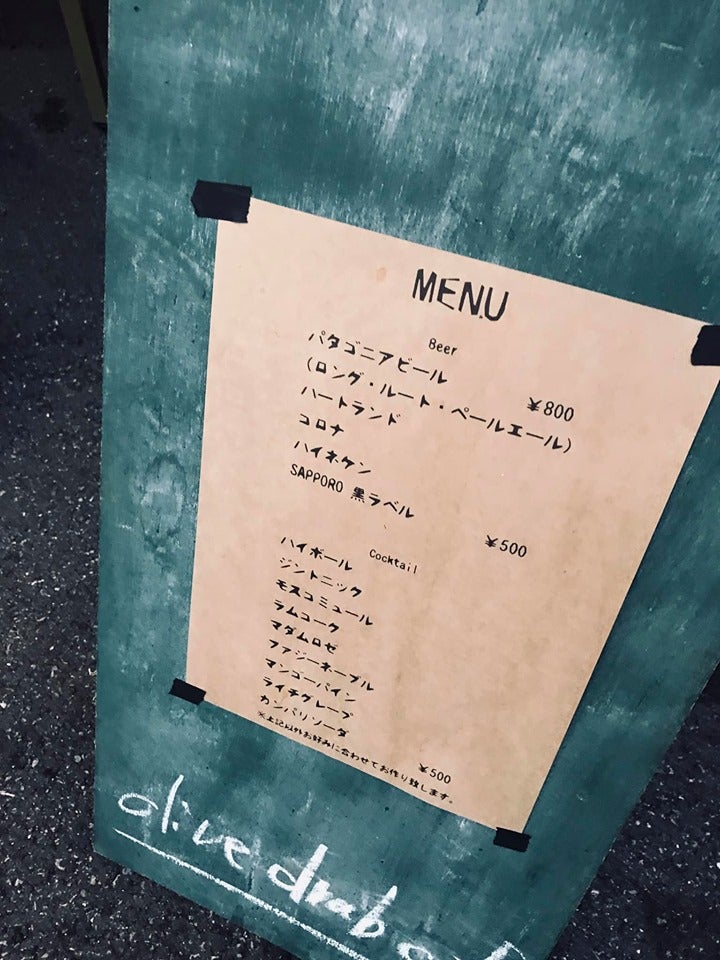 MENU
Beer
パタゴニアビール
(ロング・ルート・ペールエール) ¥800
ハートランド
コロナ
ハイネケン
SAPPORO 黒ラベル
¥500
Cocktail
ハイボール
ジントニック
モスコミュール
ラムコーク
マダムロゼ
ファジーネーブル
マンゴーパイン
ライチグレープ
カンパリソーダ
¥500
※上記以外お好みに合わせてお作り致します。
olive drab